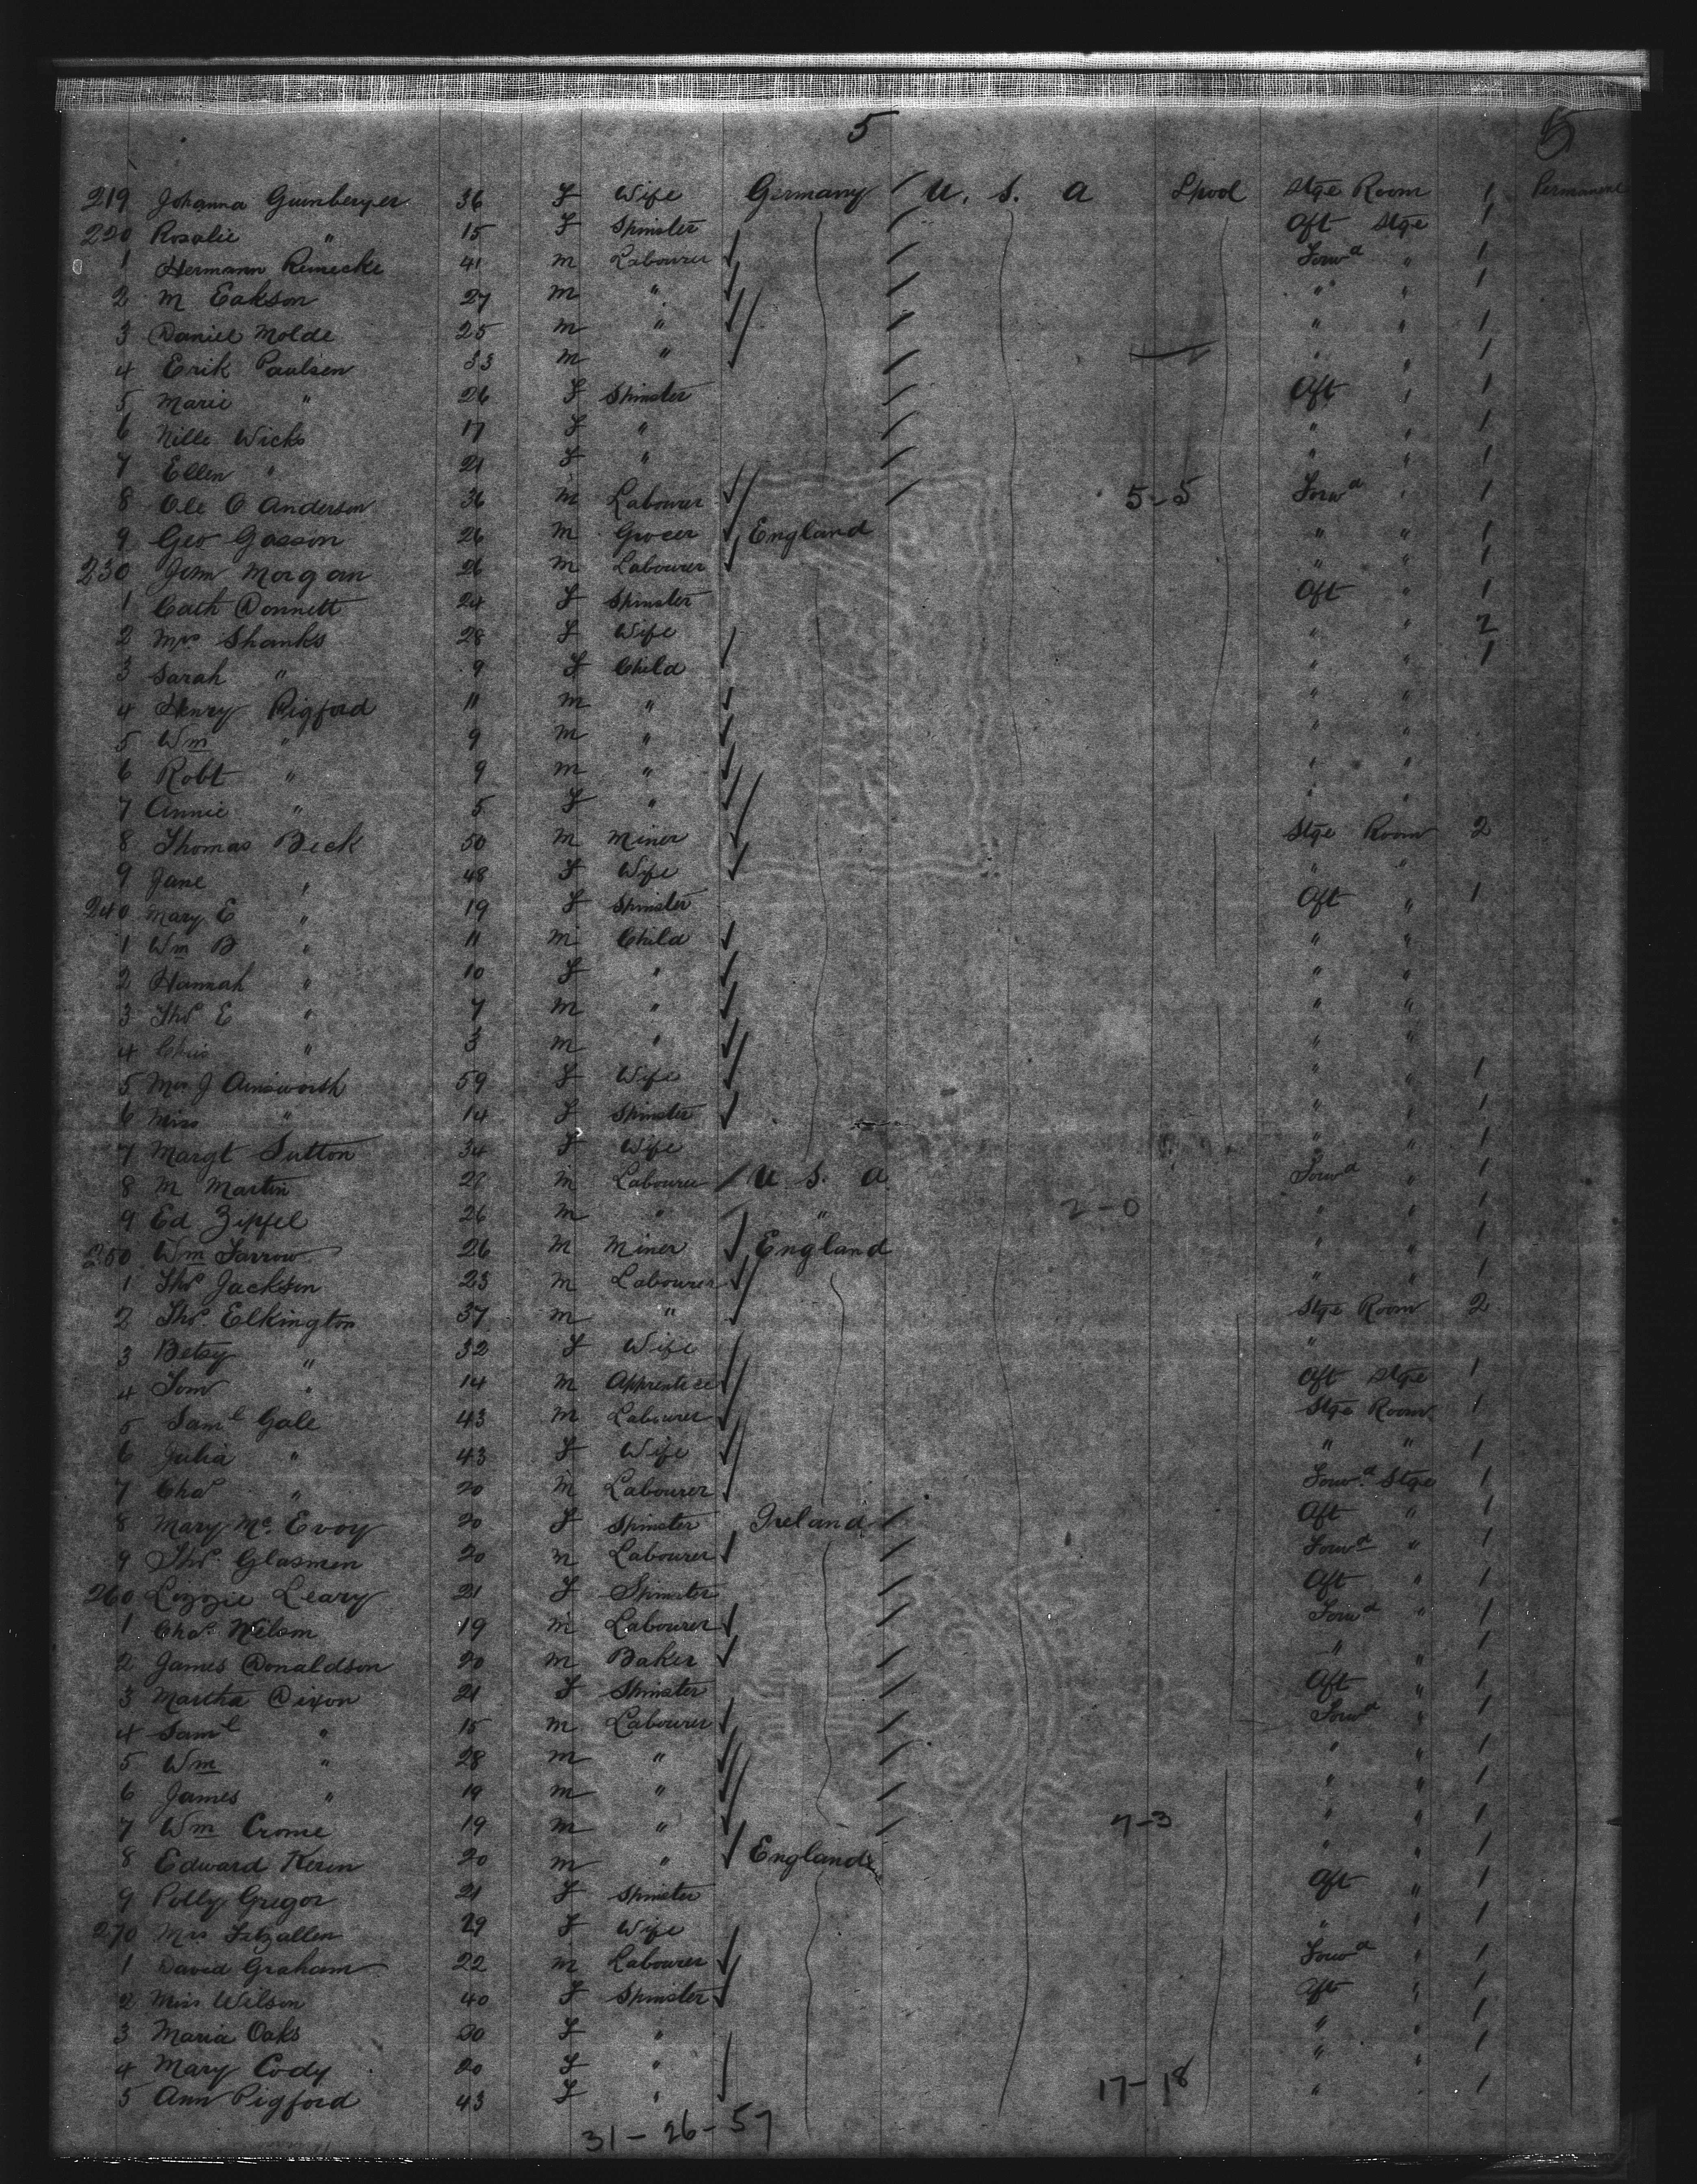 5 5
219 Johanna Gumberger 36 F Wife Germany / U. S. A Lpool Stge Room 1 Permanent
220 Rosalie " 15 F Spinster / Aft Stge 1
1 Hermann Reinecke 41 M Labourer / Forwd " 1
2 M Eakson 27 M " / " " 1
3 Daniel Molde 25 M " / " " 1
4 Erik Paulsen 33 M " / " " 1
5 Marie " 26 F Spinster / Aft " 1
6 Nille Wicks 17 F " / " " 1
7 Ellen " 21 F " / " " 1
8 Ole O Anderson 36 M Labourer / 5-5 Forwd " 1
9 Geo Gasson 26 M Grocer England " " 1
230 John Morgan 26 M Labourer " " 1
1 Cath Donnett 24 F Spinster Aft " 1
2 Mrs Shanks 28 F Wife " " 2
3 Sarah " 9 F Child " " 1
4 Henry Pigford 11 M " " "
5 Wm " 9 M " " "
6 Robt " 9 M " " "
7 Annie " 5 F " " "
8 Thomas Beck 50 M Miner Stge Room 2
9 Jane " 48 F Wife " "
240 Mary E " 19 F Spinster Aft " 1
1 Wm B " 11 M Child " "
2 Hannah " 10 F " " "
3 Thos E " 7 M " " "
4 Chris " 3 M " " "
5 Mrs J Ainsworth 59 F Wife " " 1
6 Miss " 14 F Spinster " " 1
7 Margt Sutton 34 F Wife " " 1
8 M Martin M Labourer / U. S. A Forwd " 1
9 Ed Zipfel 26 M " / " 2-0 " " 1
250 Wm Farrow 26 M Miner England " " 1
1 Thos Jackson 23 M Labourer " " 1
2 Thos Elkington 37 M " Stge Room 2
3 Betsy " 32 F Wife "
4 Tom " 14 M Apprentice Aft Stge 1
5 Saml Gale 43 M Labourer Stge Room 1
6 Julia " 43 F Wife " " 1
7 Chas " 20 M Labourer Forwd Stge 1
8 Mary McEvoy 20 F Spinster Ireland / Aft " 1
9 Thos Glasmen 20 M Labourer / Forwd " 1
260 Lizzie Leary 21 F Spinster / Aft " 1
1 Chas Nelson 19 M Labourer / Forwd " 1
2 James Donaldson 20 M Baker / " " 1
3 Martha Dixon 21 F Spinster / Aft " 1
4 Saml " 15 M Labourer / Forwd " 1
5 Wm " 28 M " / " " 1
6 James " 19 M " / " " 1
7 Wm Crome 19 M " / 7-3 " " 1
8 Edward Kerin 20 M " England " " 1
9 Polly Gregor 21 F Spinster Aft " 1
270 Mrs Fitzallen 29 F Wife " " 1
1 David Graham 22 M Labourer Forwd " 1
2 Miss Wilson 40 F Spinster Aft " 1
3 Maria Oaks F " " " 1
4 Mary Cody 20 F " " " 1
5 Ann Pigford 43 F " 17-18 " " 1
31-26-57